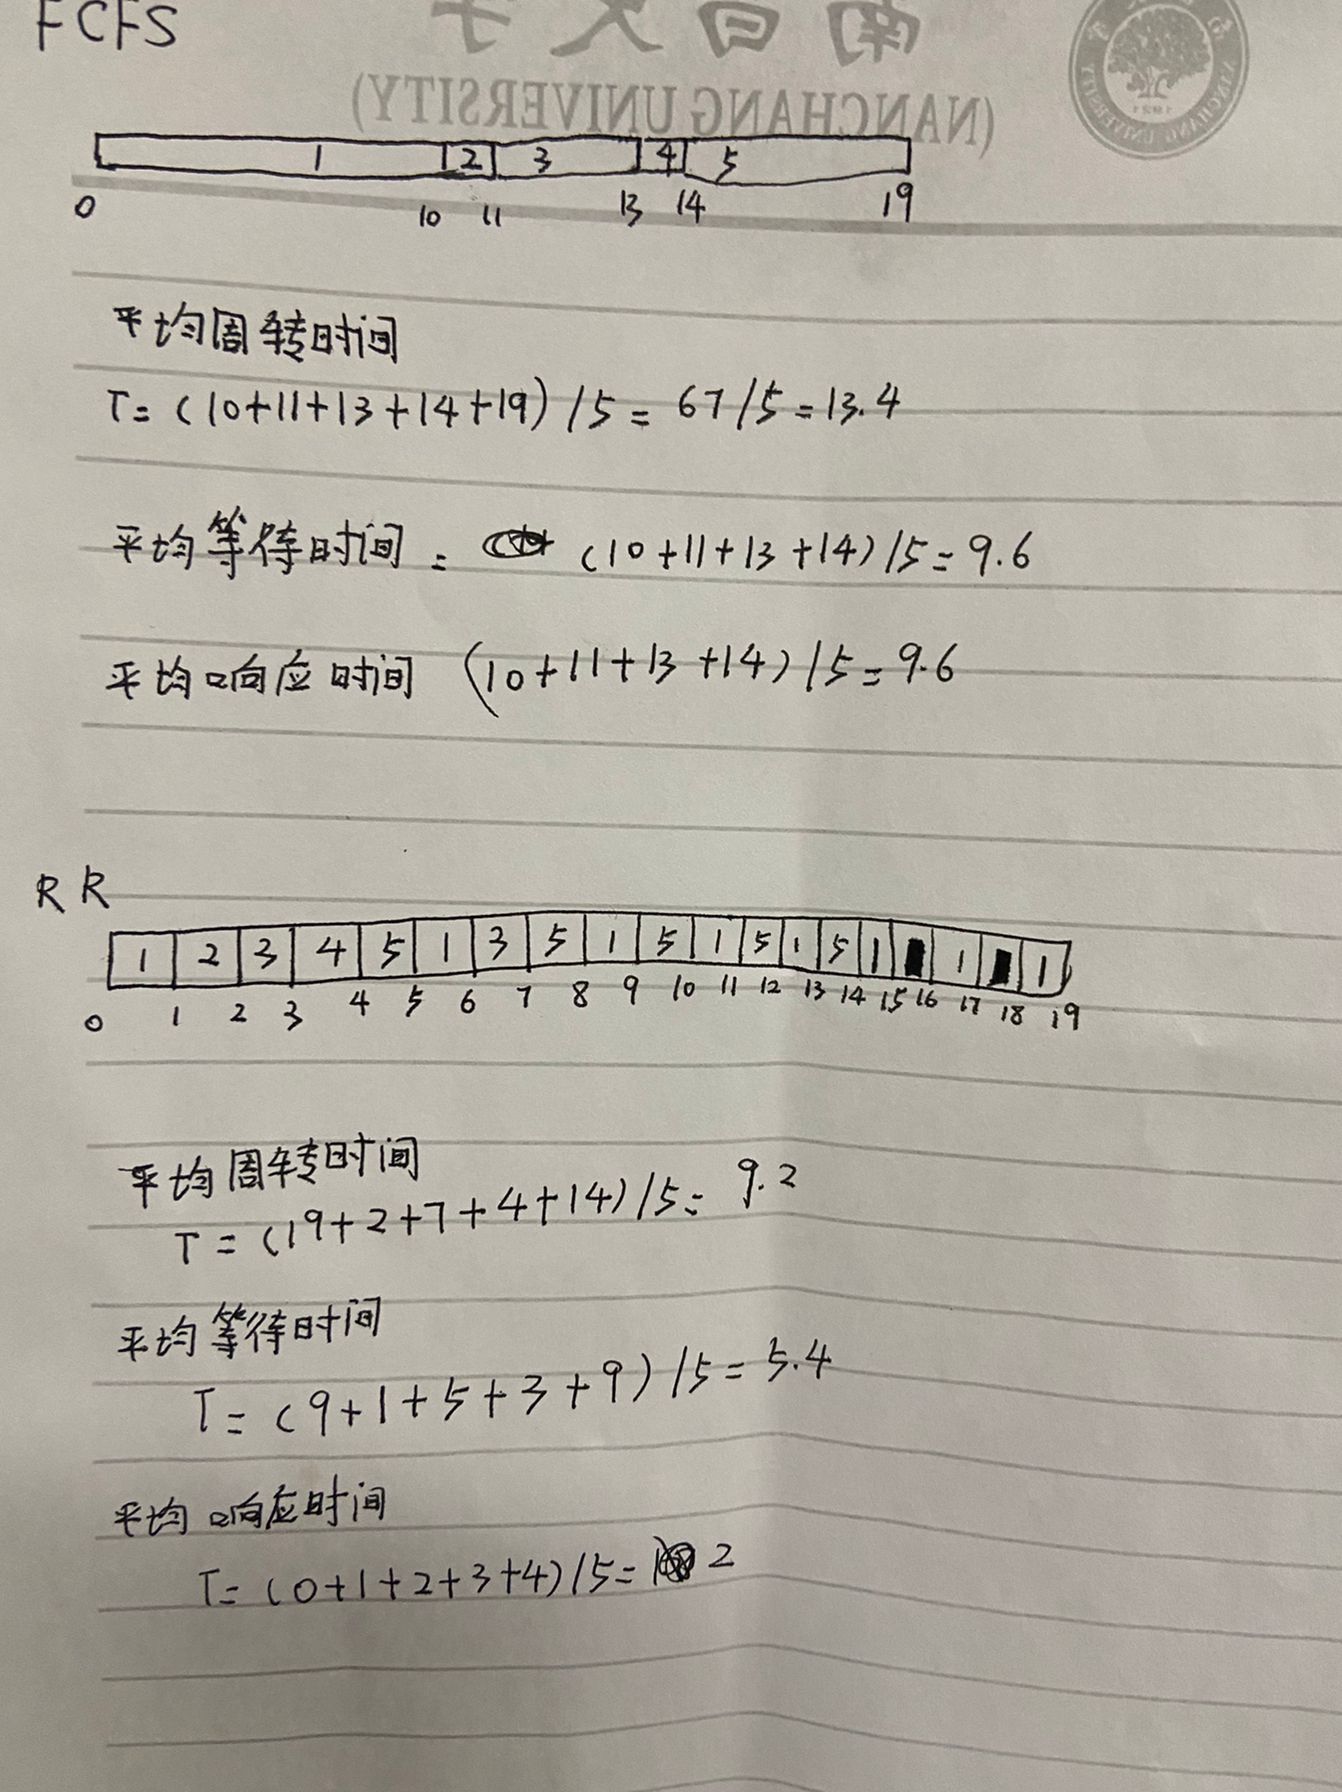 FCFS
南昌大学
(NANCHANG UNIVERSITY)
1 2 3 4 5
0 10 11 13 14 19
平均周转时间
T= (10+11+13+14+19) /5 = 67/5=13.4
平均等待时间 = (10+11+13+14)/5=9.6
平均响应时间 (10+11+13+14)/5=9.6
RR
1 2 3 4 5 1 3 5 1 5 1 5 1 5 1 1 1
0 1 2 3 4 5 6 7 8 9 10 11 12 13 14 15 16 17 18 19
平均周转时间
T=(19+2+7+4+14)/5= 9.2
平均等待时间
T=(9+1+5+3+9)/5=5.4
平均响应时间
T=(0+1+2+3+4)/5= 2